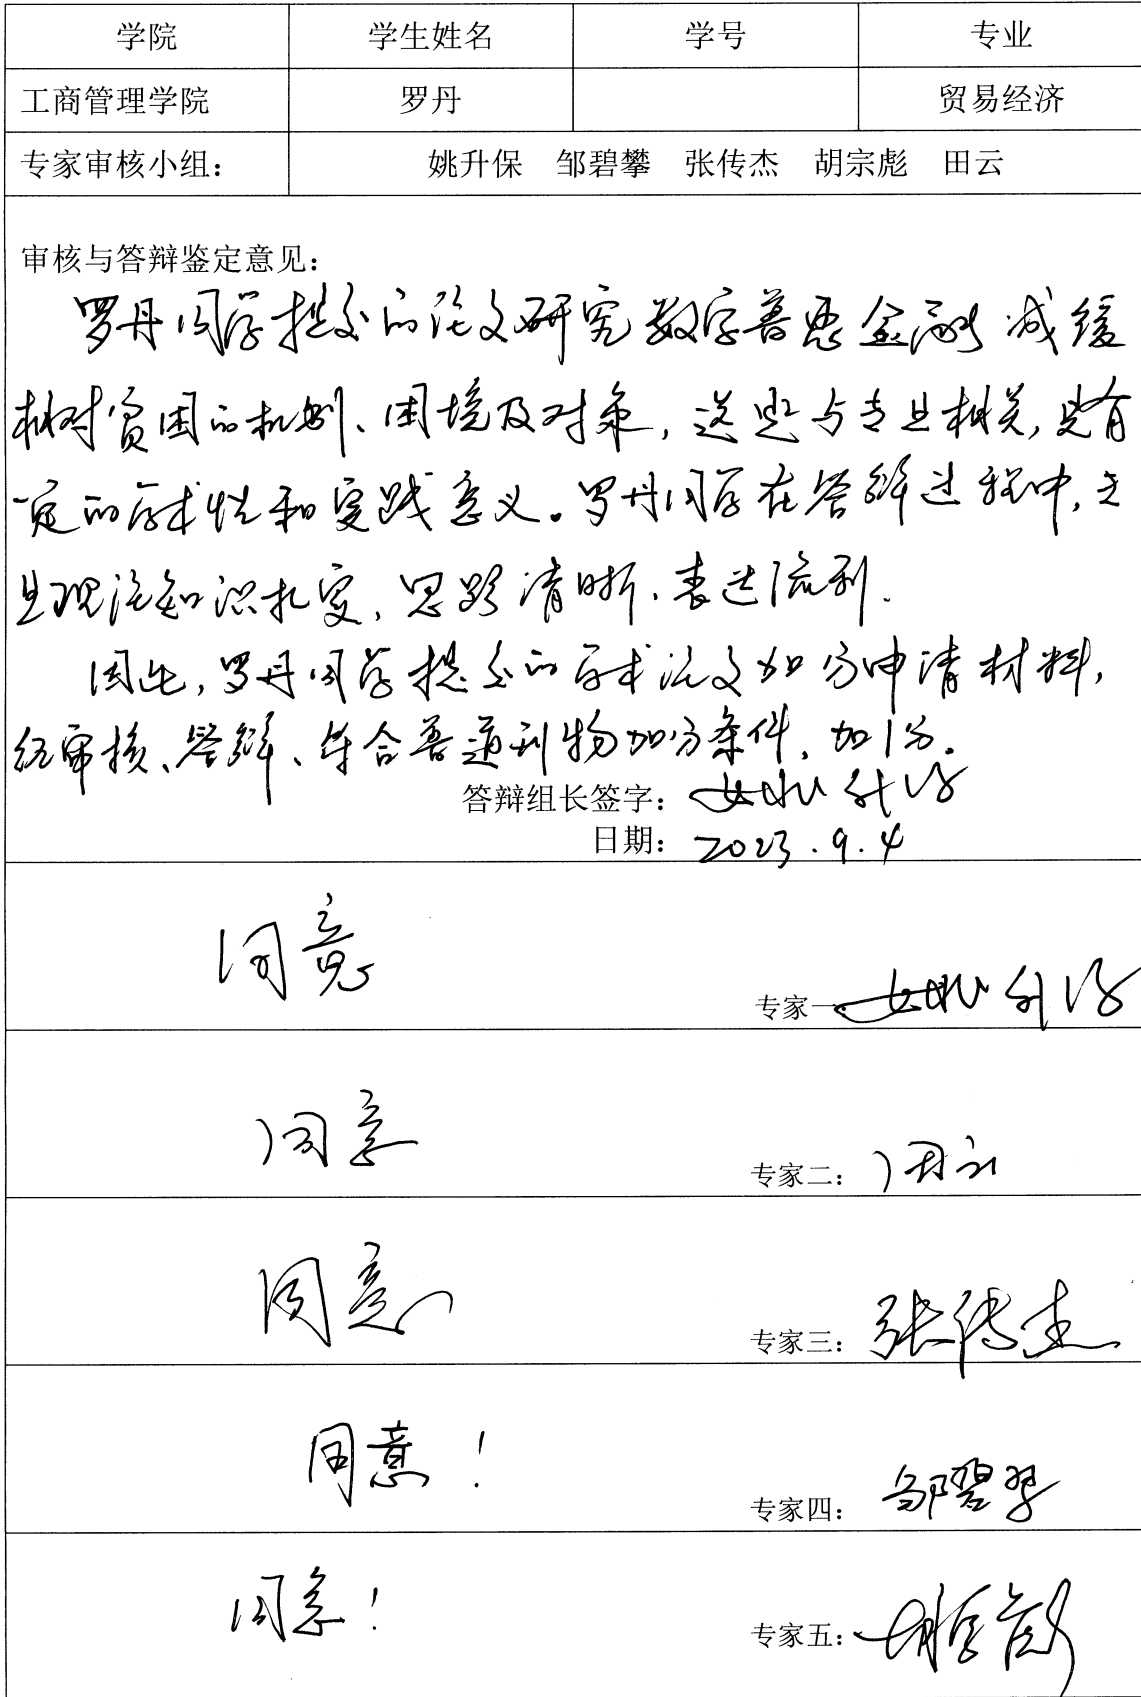 学院 学生姓名 学号 专业
工商管理学院 罗丹 贸易经济
专家审核小组： 姚升保 邹碧攀 张传杰 胡宗彪 田云
审核与答辩鉴定意见：
罗丹同学提交的论文研究数字普惠金融减缓
相对贫困的机制、困境及对策，选题与专业相关，具有
一定的学术性和实践意义。罗丹同学在答辩过程中，专
业理论知识扎实，思路清晰，表达流利.
因此，罗丹同学提交的学术论文加分申请材料，
经审核、答辩、符合普通刊物加分条件，加1分。
答辩组长签字： 姚升保
日期： 2023.9.4
同意
专家一： 姚升保
同意
专家二： 田云
同意
专家三： 张传杰
同意！
专家四： 邹碧攀
同意！
专家五： 胡宗彪